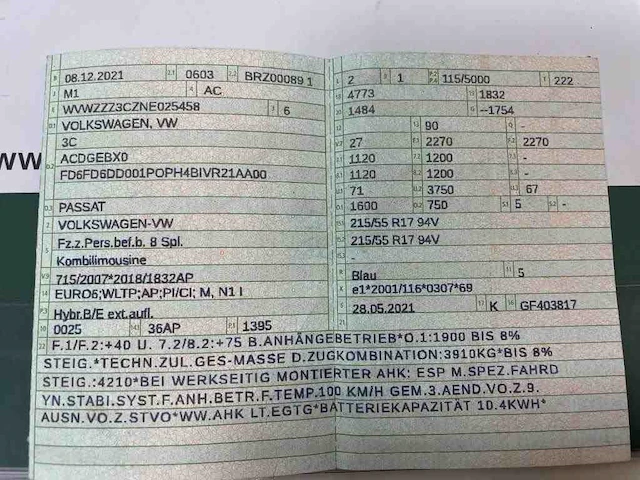 08.12.2021 0603 BRZ00089 1
M1 AC
WVWZZZ3CZNE025458 6
VOLKSWAGEN, VW
3C
ACDGEBX0
FD6FD6DD001POPH4BIVR21AA00
PASSAT
VOLKSWAGEN-VW
Fz.z.Pers.bef.b. 8 Spl.
Kombilimousine
715/2007*2018/1832AP
EURO6;WLTP;AP;PI/CI; M, N1 I
Hybr.B/E ext.aufl.
0025 36AP 1395
2 1 115/5000 222
4773 1832
1484 --1754
90 -
27 2270 2270
1120 1200 -
1120 1200 -
71 3750 67
1600 750 5 -
215/55 R17 94V
215/55 R17 94V
-
Blau 5
e1*2001/116*0307*69
28.05.2021 K GF403817
F.1/F.2:+40 U. 7.2/8.2:+75 B.ANHÄNGEBETRIEB*O.1:1900 BIS 8%
STEIG.*TECHN.ZUL.GES-MASSE D.ZUGKOMBINATION:3910KG*BIS 8%
STEIG.:4210*BEI WERKSEITIG MONTIERTER AHK: ESP M.SPEZ.FAHRD
YN.STABI.SYST.F.ANH.BETR.F.TEMP.100 KM/H GEM.3.AEND.VO.Z.9.
AUSN.VO.Z.STVO*WW.AHK LT.EGTG*BATTERIEKAPAZITÄT 10.4KWH*